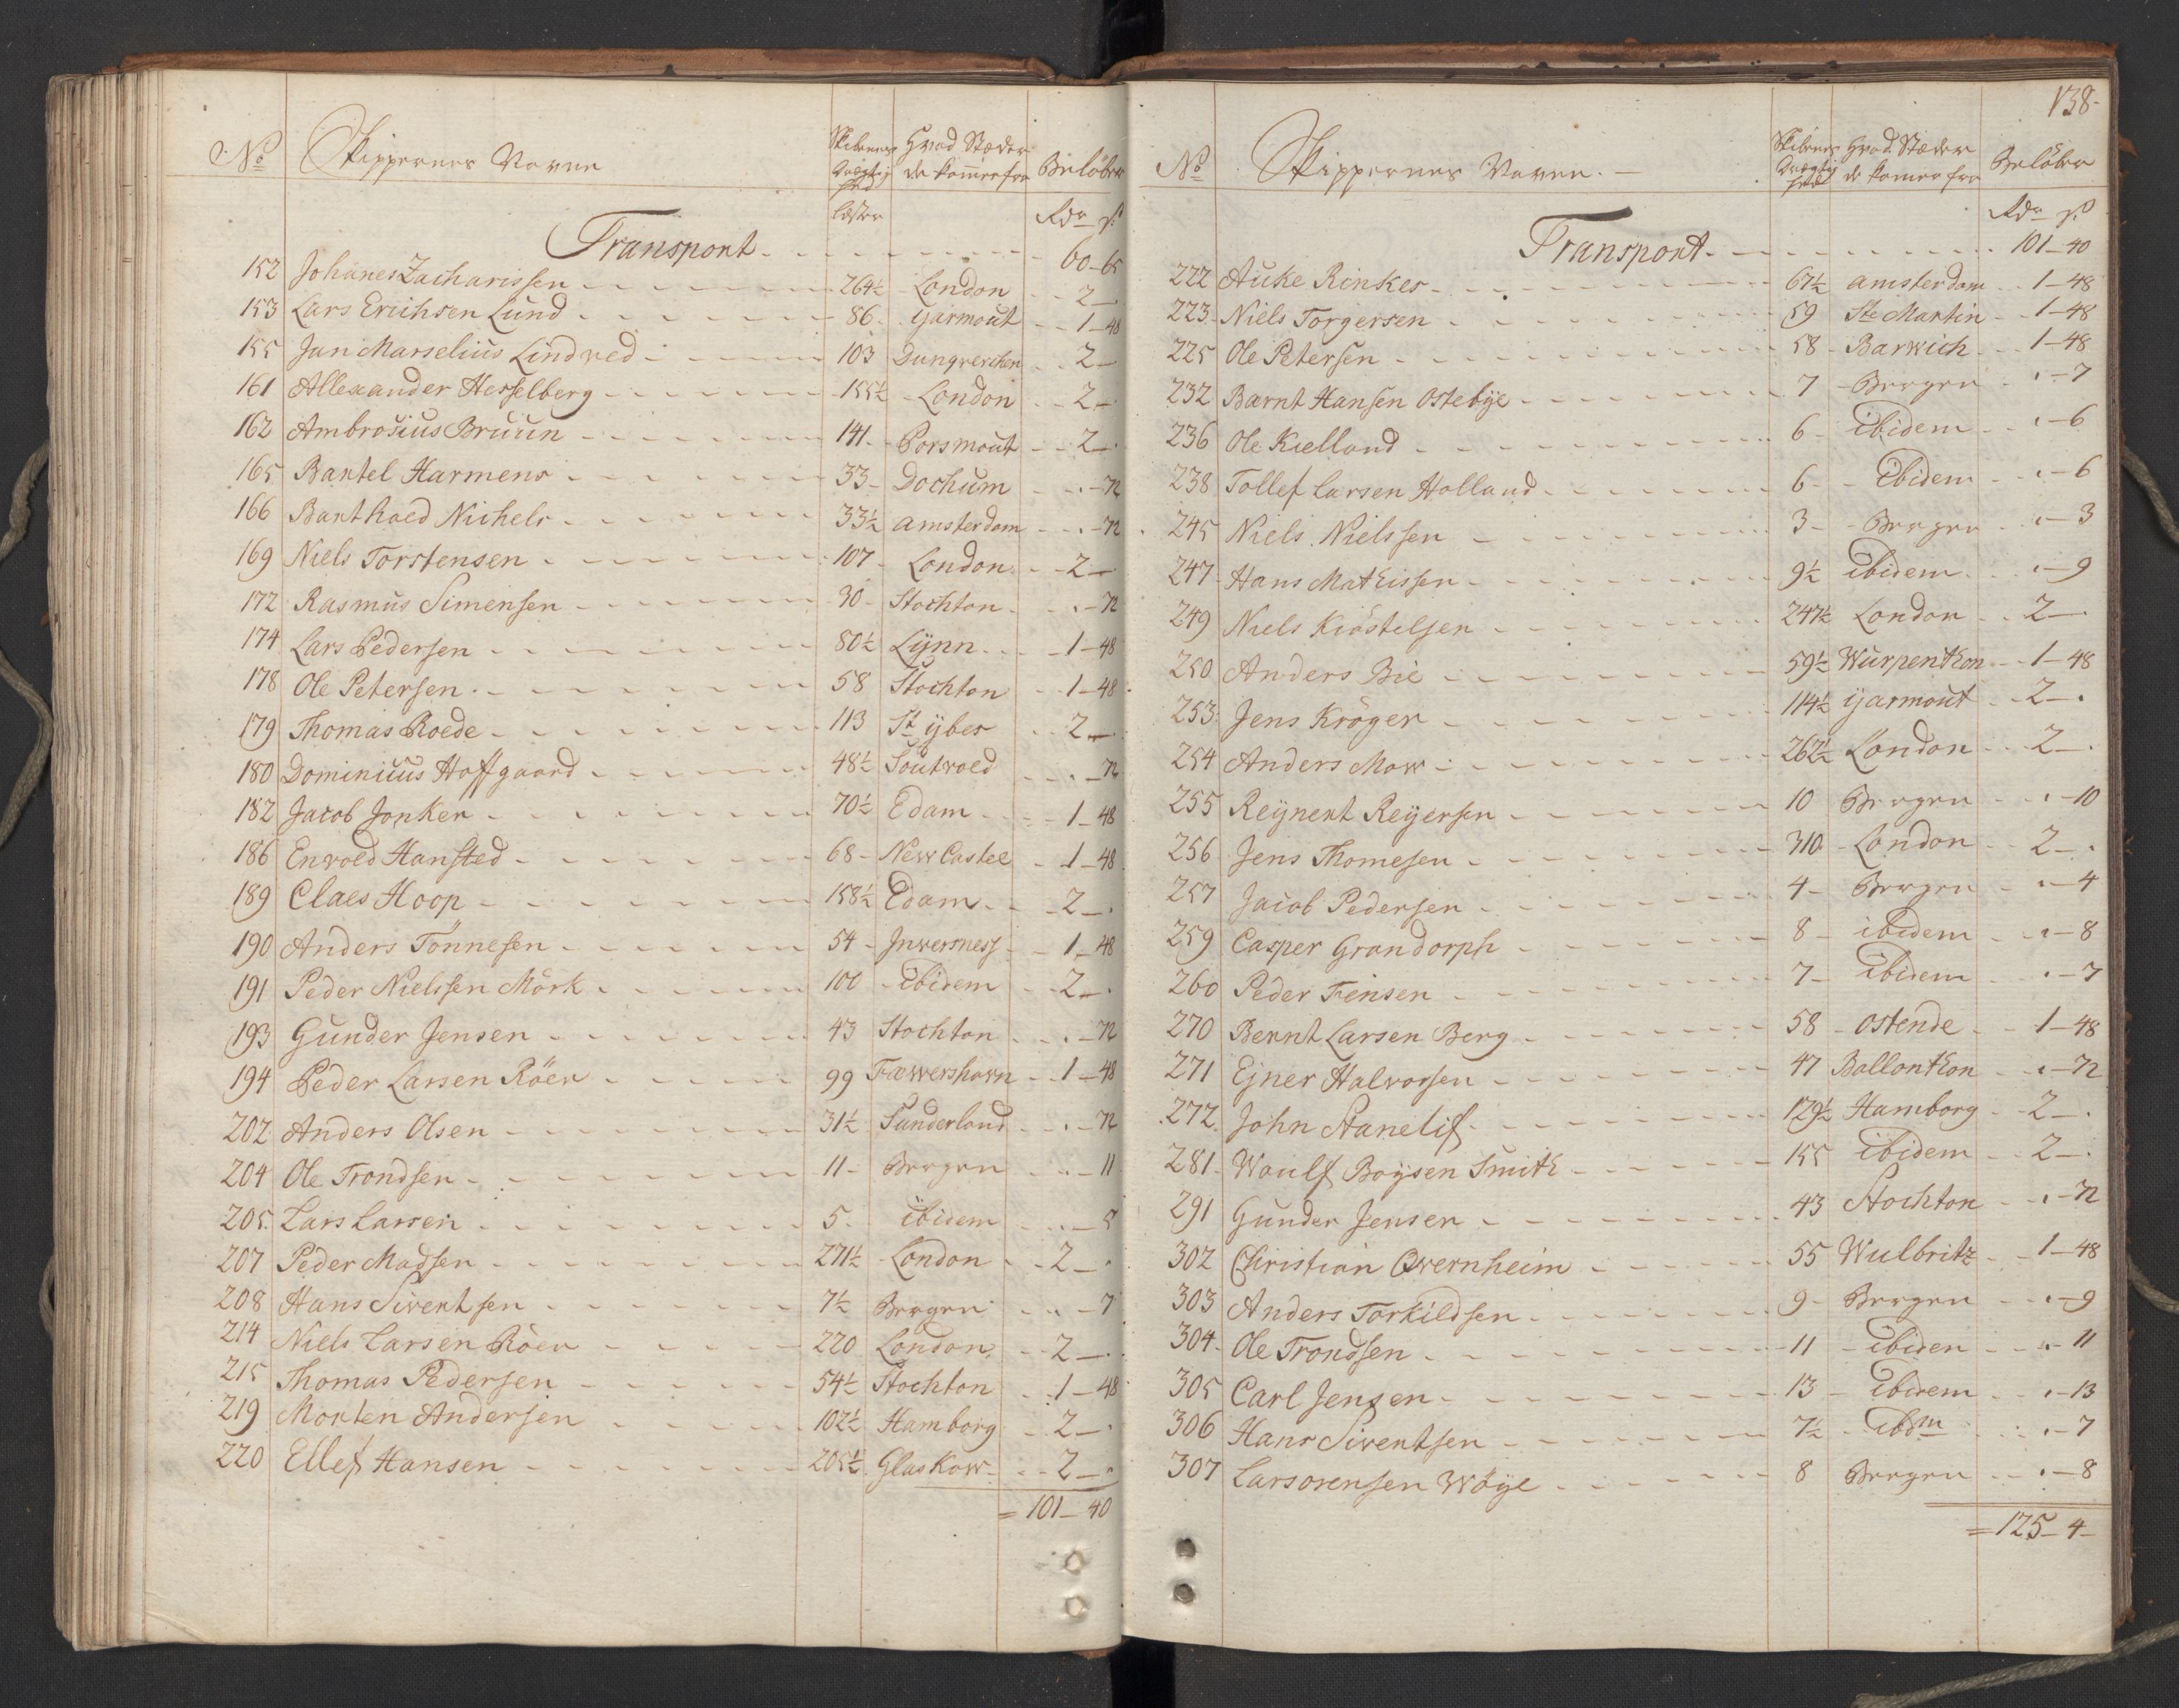 No Skippernes Navne Skibenes Drægtighed Hvad Stæder de kommer fra Beløber
Læster Rdr s
Transport 60-65
152 Johanes Zacharissen 264½ London 2-
153 Lars Erichsen Lund 86 Yarmout 1-48
155 Jan Marselius Lindved 103 Dunqverchen 2-
161 Allexander Hesselberg 155½ London 2-
162 Ambrosius Bruun 141 Porsmout 2-
165 Bartel Harmens 33 Dochum -72
166 Barthold Nichels 33½ amsterdam -72
169 Niels Torstensen 107 London 2-
172 Rasmus Simensen 30 Stockton -72
174 Lars Pedersen 80½ Lynn 1-48
178 Ole Petersen 58 Stockton 1-48
179 Thomas Roede 113 St ybes 2-
180 Dominicus Hoffgaard 48½ Soutwold -72
182 Jacob Jonker 70½ Edam 1-48
186 Enwold Hansted 68 New Castel 1-48
189 Claes Hoop 158½ Edam 2-
190 Anders Tönnesen 54 Inversness 1-48
191 Peder Nielssen Mörk 100 ibidem 2-
193 Gunder Jensen 43 Stockton -72
194 Peder Larsen Röer 99 Fæwershavn 1-48
202 Anders Olsen 31½ Sunderland -72
204 Ole Trondsen 11 Bergen -11
205 Lars Larsen 5 ibidem -5
207 Peder Madsen 271½ London 2-
208 Hans Sivertsen 7½ Bergen -7
214 Niels Larsen Röer 220 London 2-
215 Thomas Pedersen 54½ Stockton 1-48
219 Morten Andersen 102½ Hamborg 2-
220 Ellef Hansen 205½ Glaskow 2-
= 101-40
138
No Skippernes Navne Skibenes Drægtighed Hvad Stæder de komer fra Beløber
Rdr s
Transport 101-40
222 Auke Rinkes 67½ amsterdam 1-48
223 Niels Torgersen 59 Ste Martin 1-48
225 Ole Petersen 58 Barwich 1-48
232 Bærnt Hansen Ostebye 7 Bergen -7
236 Ole Kielland 6 ibidem -6
238 Tollef Larsen Holland 6 Ibidem -6
245 Niels Nielssen 3 Bergen -3
247 Hans Mathissen 9½ ibidem -9
249 Niels Kiöstelsen 247½ London 2-
250 Anders Bie 59½ Wurpenthon 1-48
253 Jens Kröger 114½ yarmout 2-
254 Anders Mow 262½ London 2-
255 Reynert Reyersen 10 Bergen -10
256 Jens Thomesen 310 London 2-
257 Jacob Pedersen 4 Bergen -4
259 Casper Grandorph 8 ibidem -8
260 Peder Finsen 7 ibidem -7
270 Bernt Larsen Berg 58 Ostende 1-48
271 Ejner Halvorsen 47 Ballonthon -72
272 John Stanelif 129½ Hamborg 2-
281 Woulf Boysen Smith 155 ibidem 2-
291 Gunder Jensen 43 Stockton -72
302 Christian Qvernheim 55 Wulbritz 1-48
303 Anders Torkildsen 9 Bergen -9
304 Ole Trondsen 11 ibiden -11
305 Carl Jensen 13 ibidem -13
306 Hans Sivertsen 7½ ibdm -7
307 Lars orensen Wöye 8 Bergen -8
= 125-4-